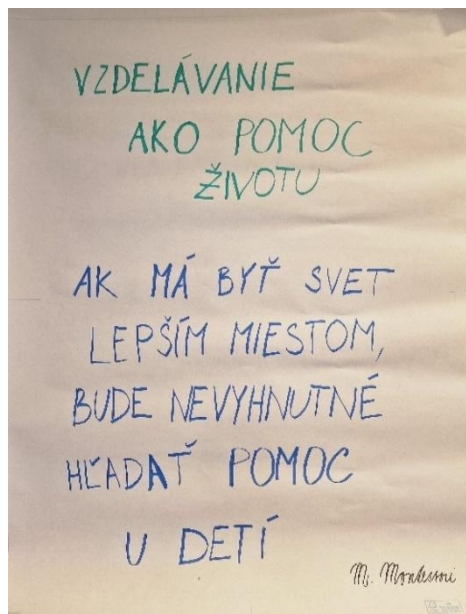 VZDELÁVANIE
AKO POMOC
ŽIVOTU
AK MÁ BYŤ SVET
LEPŠÍM MIESTOM,
BUDE NEVYHNUTNÉ
HĽADAŤ POMOC
U DETÍ
M. Montessori